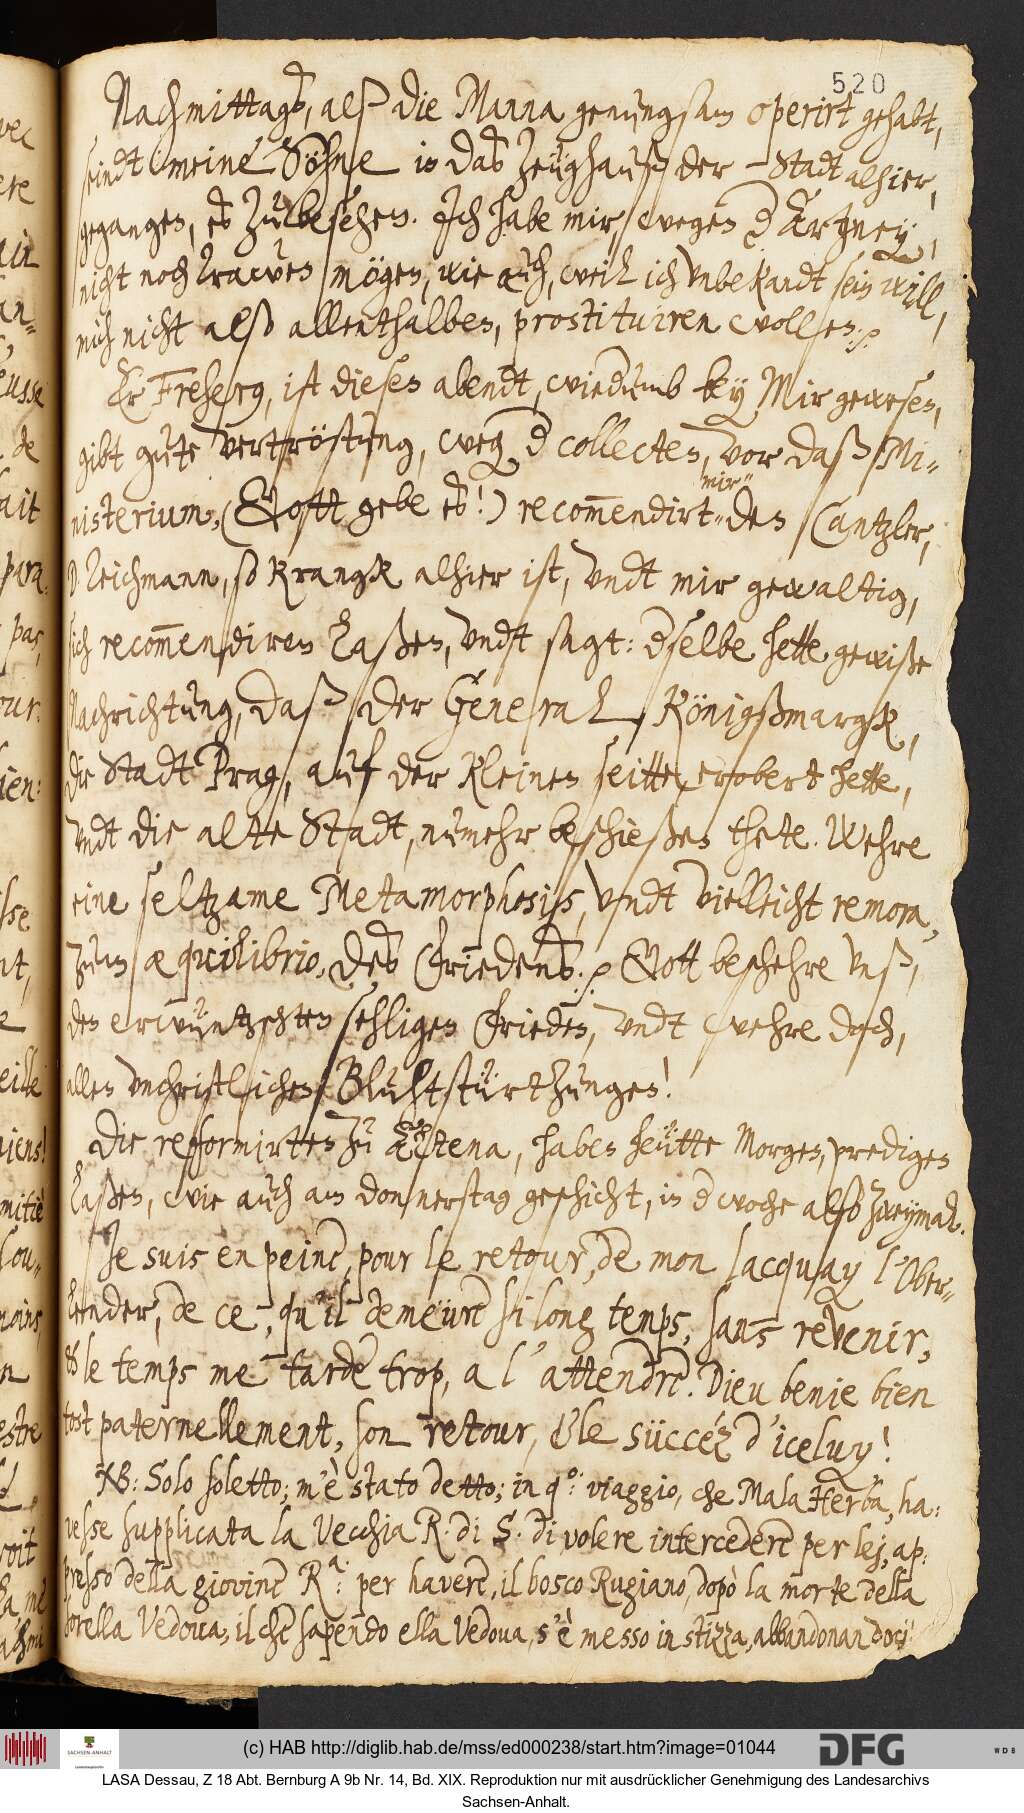 520
Nachmittags, alß die Manna genungsam operirt gehabt,
seindt meine Söhne in das Zeüghauß der Stadt alhier,
gegangen, es zu besehen. Ich habe mir, wegen d Artzney,
nicht noch trawen mögen, wie auch, weil ich vnbekandt sein will,
mich nicht also allenthalben, prostituiren wollen. p
Er Freherg, ist diesen abendt, wiedumb bey Mir gewesen,
gibt gute vertröstung, weg d collecten, vor daß Mi-
nisterium, (Gott gebe es!) recom̄endirt mir den Cantzler,
D. Teichmann, so Krangk alhier ist, vndt mir gewaltig,
sich recom̄endiren laßen, vndt sagt: dselbe hette gewiße
Nachrichtung, daß der General Königßmargk,
die Stadt Prag, auf der kleinen seitte, erobert hette,
vndt die alte Stadt, numehr beschießen thete. Wehre
eine seltzame Metamorphosis, vndt vielleicht remora,
zum æquilibrio, des Friedens. p Gott beschehre vnß,
den erwüntzschten sehligen Frieden, vndt wehre doch,
allen vnchristlichen Bluhtstürtzungen!
Die refformirten zu Cöhtena, haben heütte Morgen, predigen
laßen, wie auch am donnerstag geschicht, in d woche also zweymal.
Je suis en peinè, pour le retour, de mon lacquay l'Ober-
lender, de ce, qu'il demeure si long temps, sans revenir,
& le temps me tarde trop, a l'attendre. Dieu benie bien
tost paternellement, son retour, & le succéz d'iceluy!
NB: Solo soletto; m'è stato detto; in qo: viaggio, che Mala Herba, ha:
vesse supplicata la Vecchia R. di S. di volere intercedere per lej, ap:
presso della giovine Ra: per havere, il bosco Rugiano, dopò la morte della
sorella Vedova, il che sapendo ella Vedova, s'è messo in stizza, abbandonandosj
(c) HAB http://diglib.hab.de/mss/ed000238/start.htm?image=01044
SACHSEN-ANHALT
DFG
WDB
LASA Dessau, Z 18 Abt. Bernburg A 9b Nr. 14, Bd. XIX. Reproduktion nur mit ausdrücklicher Genehmigung des Landesarchivs
Sachsen-Anhalt.